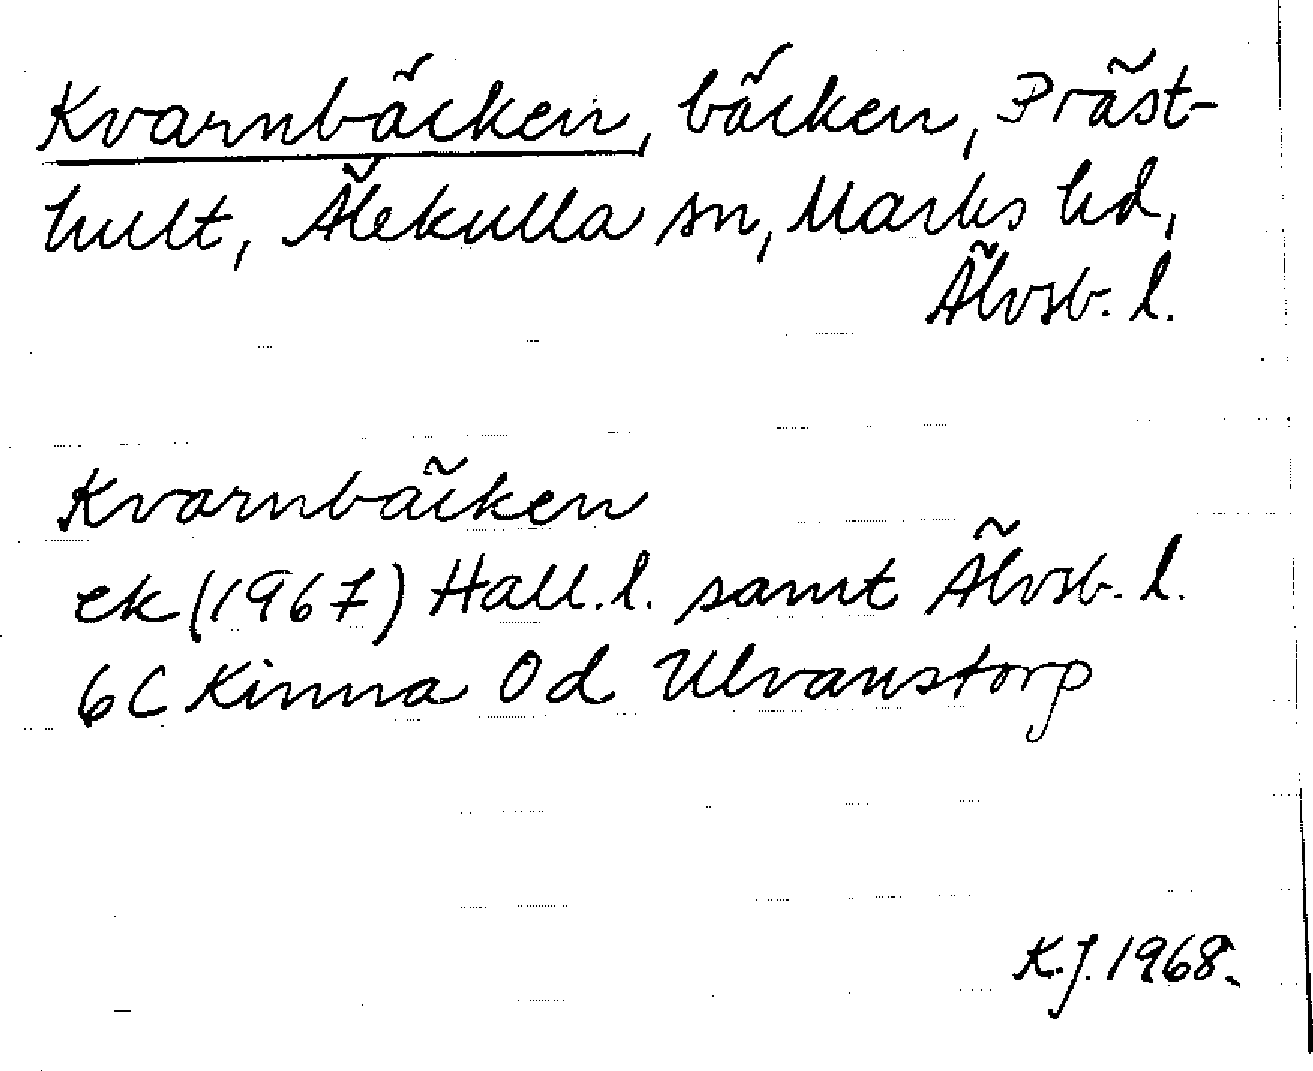 Kvarnbäcken, bäcken, Präst-
hult, Älekulla sn, Marks hd,
Älvsb. l.
Kvarnbäcken
ek (1967) Hall. l. samt Älvsb. l.
6C Kinna 0d Ulvanstorp
K.J. 1968.